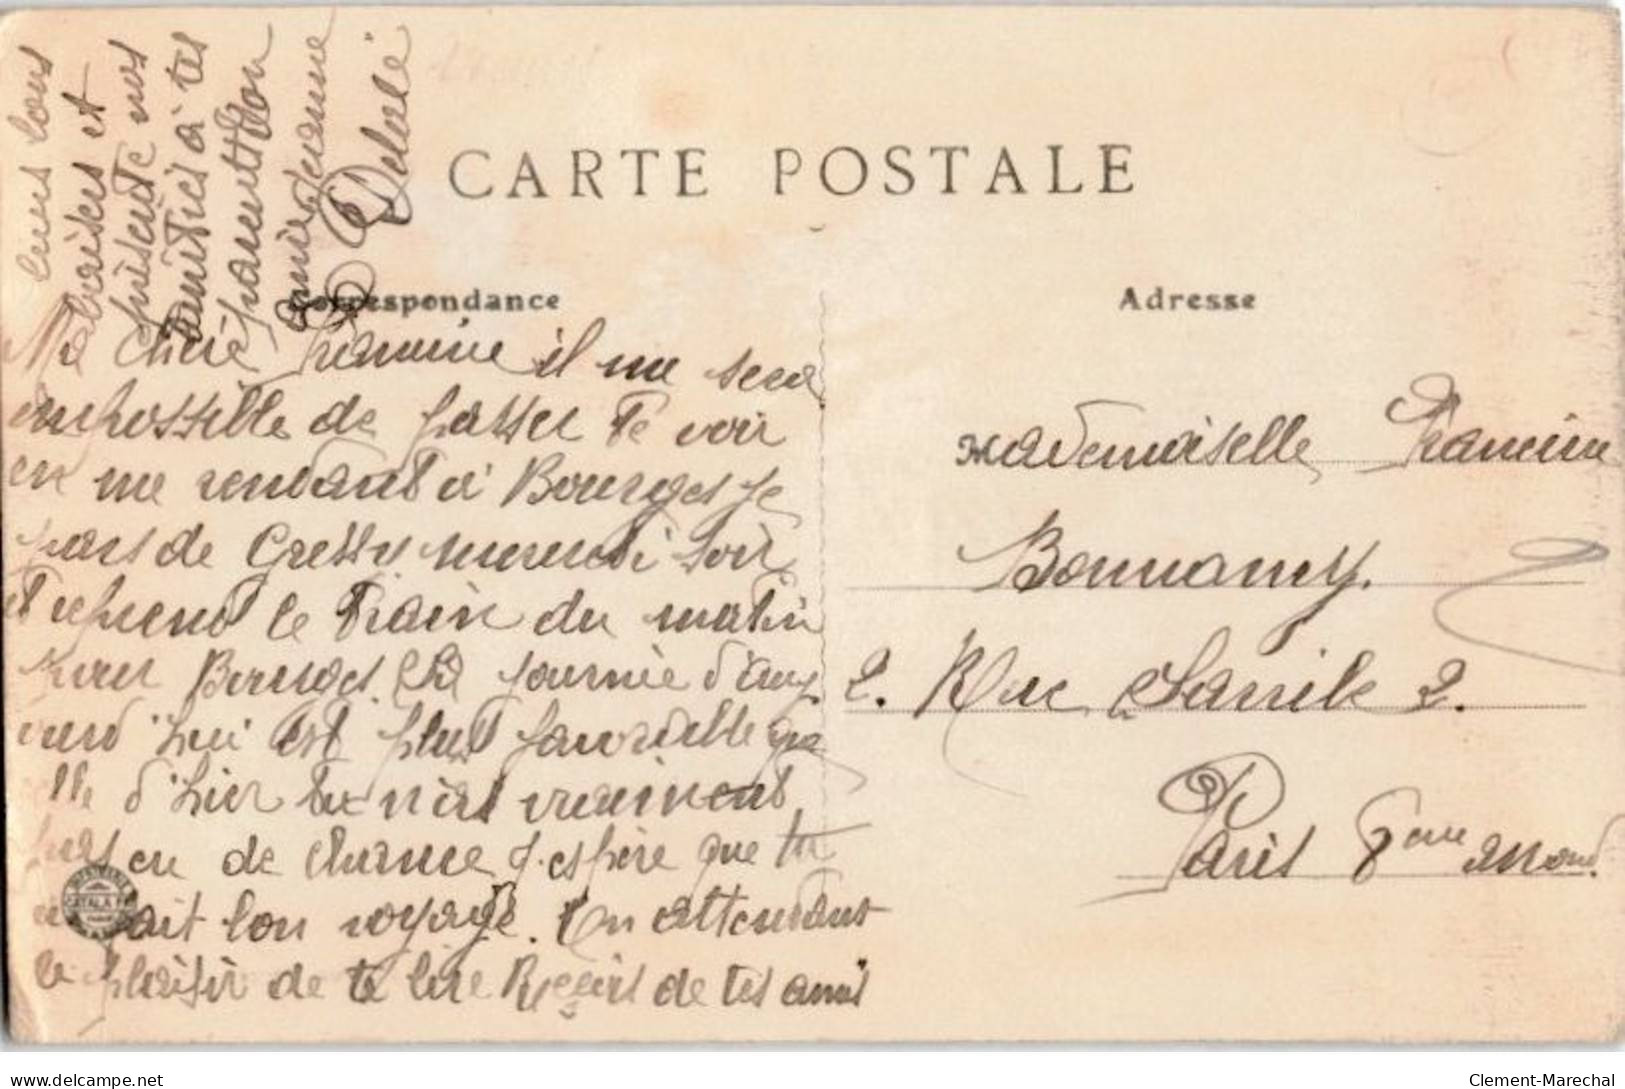 CARTE POSTALE
Correspondance
Adresse
Ma Chère Francine il me sera
impossible de passer te voir
en me rendant à Bourges je
pars de Cressy mercredi soir
et reprend le train du matin
pour Bourges. La journée d'auj
ourd'hui est plus favorable que
lle d'hier tu n'as vraiment
pas eu de chance j'espère que tu
as fait bon voyage. En attendant
le plaisir de te lire Reçois de tes amis
leurs bons
baisers et
présente nos
amitiés à tes
parents ton
amie Jeanne
Mademoiselle Francine
Bonnamy.
2. Rue 2.
Paris 8eme arrond.
CATALA
Delcampe.net
Clement-Marechal